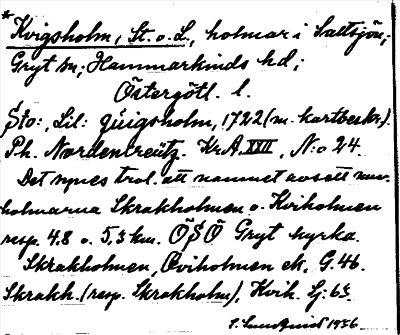 *Kvigsholm, St. o. L., holmar i Saltsjön;
Gryt sn, Hammarkinds hd,
Östergötl. l.
Sto:, Lil: quigsholm, 1722 (m. kartbeskr.).
Ph. Nordencreutz. Kr.A. XXII, N:o 24.
Det synes trol. att namnet avsett nuv.
holmarna Skrakholmen o. Kviholmen
resp. 4,8 o. 5,3 km. ÖSÖ Gryt kyrka.
Skrakholmen, Qviholmen ek, G. 46.
Skrakh. (resp. Skrakholm), Kvih. Sj. 65.
S. Sundquist 1956.